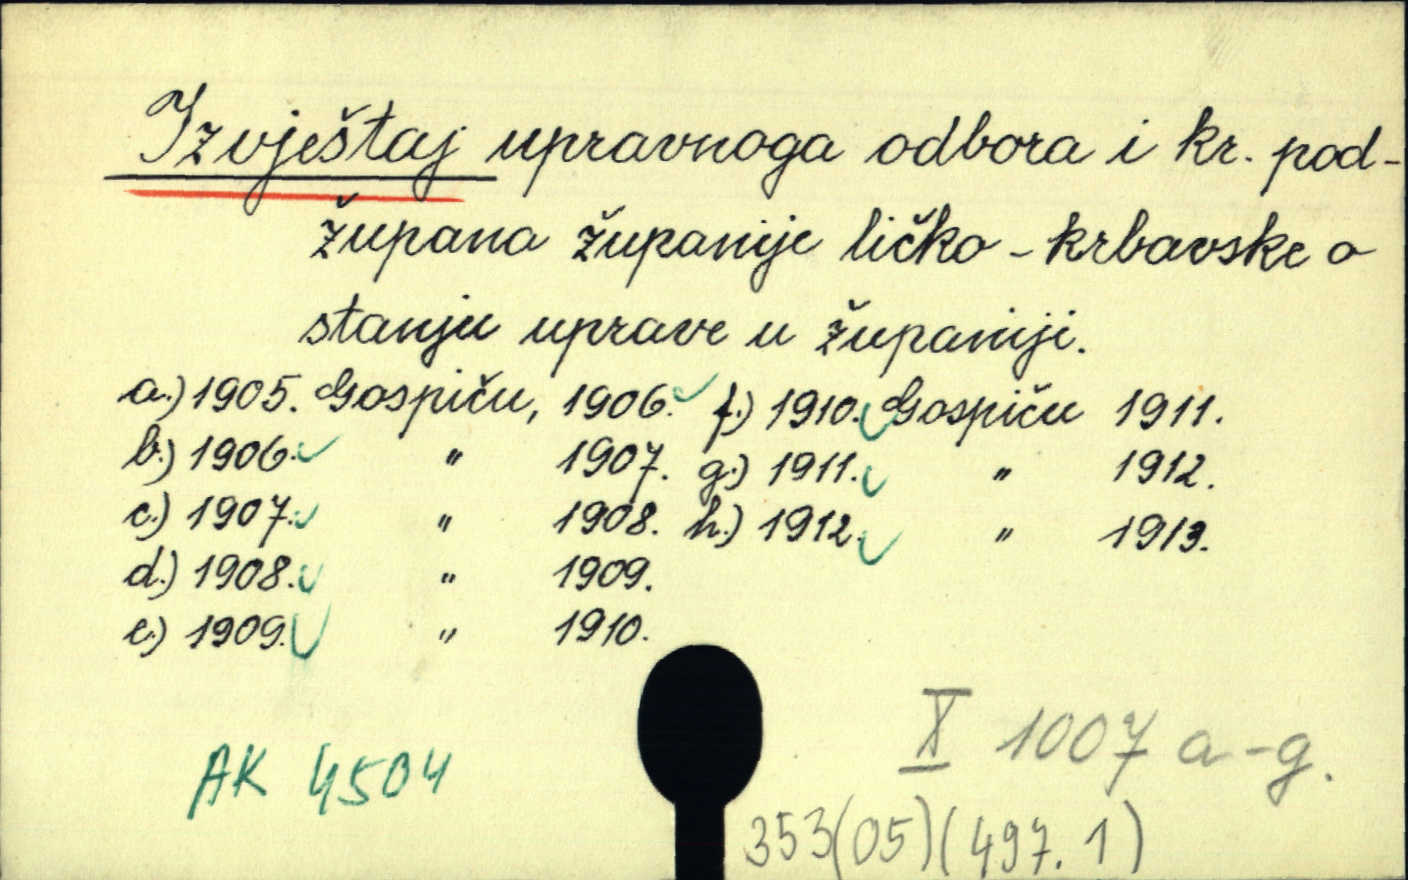 Izvještaj upravnoga odbora i kr. pod-
župana županije ličko-krbavske o
stanju uprave u županiji.
a.) 1905. Gospiću, 1906. f.) 1910. Gospiću 1911.
b.) 1906. " 1907. g.) 1911. " 1912.
c.) 1907. " 1908. h.) 1912. " 1913.
d.) 1908. " 1909.
e.) 1909. " 1910.
X 1007 a-g.
AK 4504
353(05)(497.1)